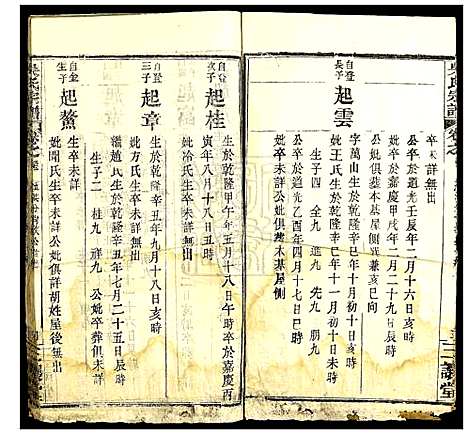 卒未詳無出
公卒於道光壬辰年二月十六日亥時
妣卒於嘉慶甲戌年二月二十八日
公妣俱葬本基屋側巽兼亥巳向
自登長子
起雲
字萬山生於乾隆辛巳年十月初十日亥時
妣王氏生於乾隆辛巳年十一月初十日未時
公卒於道光乙酉年四月十七日
生子四 全九 進九 先九 朋九
自登次子
起桂
生於乾隆甲午年五月十八日午時卒於嘉慶丙
寅年八月十八日戌時
妣冷氏生卒未詳
自登三子
起章
生於乾隆辛丑年九月十八日亥時
妣方氏生卒未詳
繼趙氏生於乾隆辛丑年七月二十五日辰時
生子二 桂九 祥九 公妣卒葬俱未詳
自登
生子
起鰲
妣閔氏生卒未詳公妣俱詳胡姓屋後無出
吳氏宗譜
三讓堂